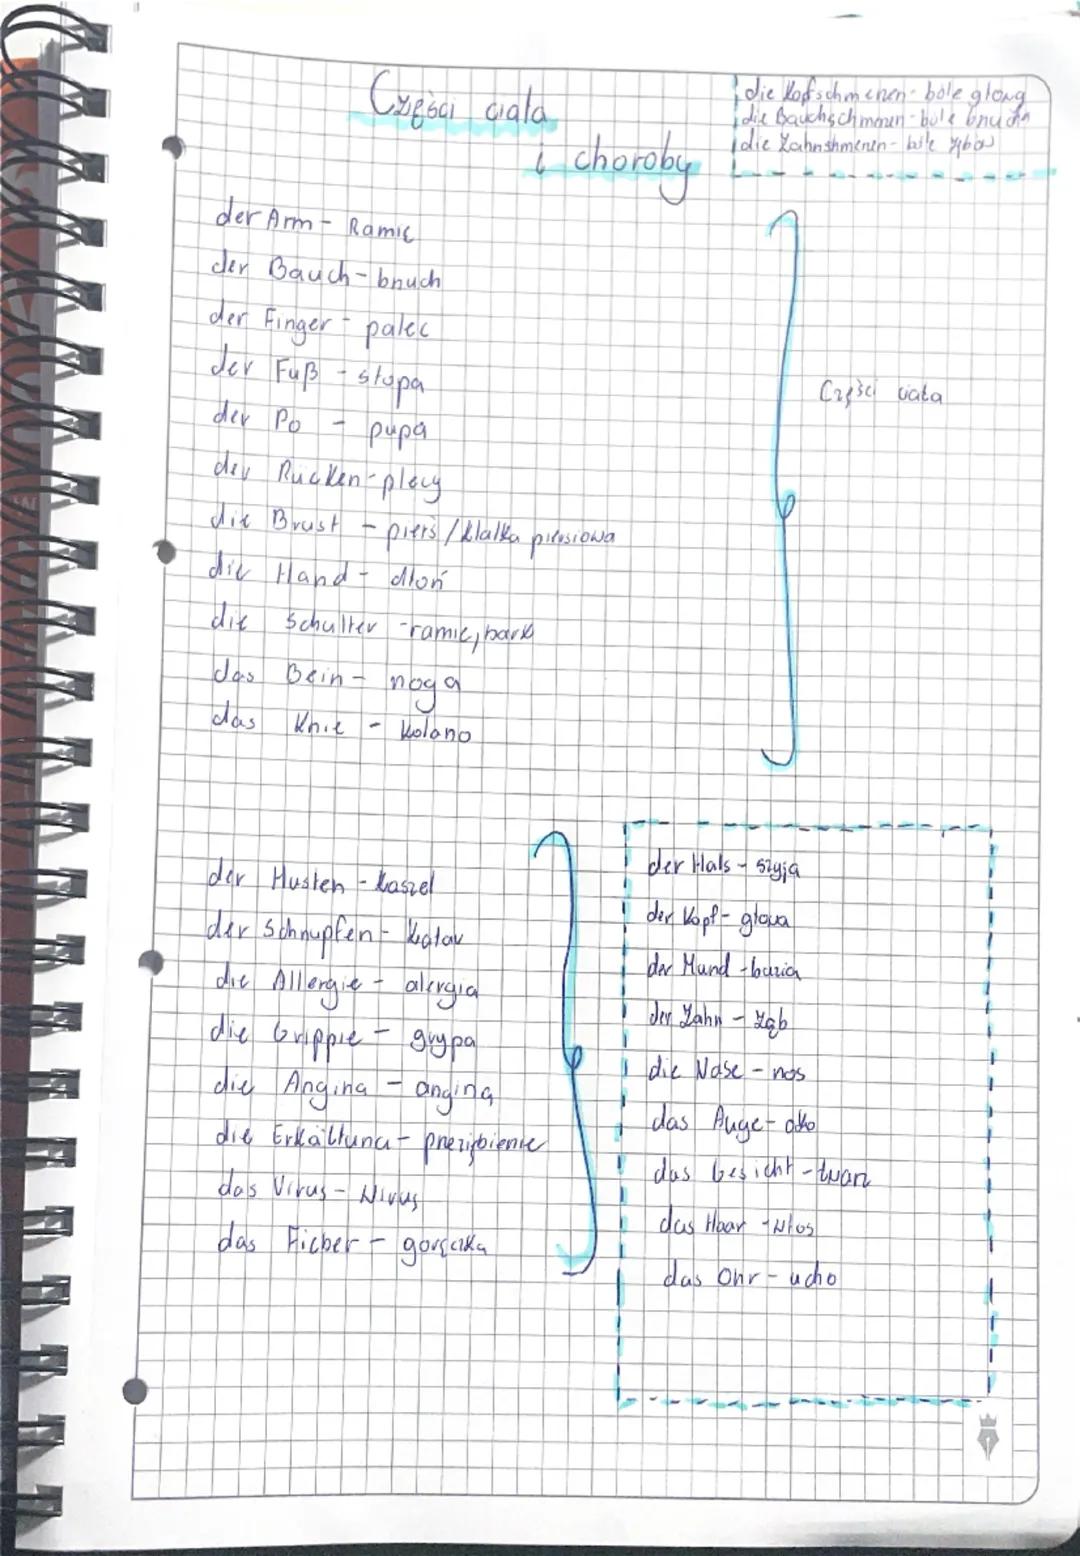 Części ciała
i choroby
die Kopfschmenen - bóle głowy
die Bauchschmenen - bóle bnucha
die Zahnshmenen - bóle zębów
der Arm - Ramię
der Bauch - bnuch
der Finger - palec
der Fuß - stopa
der Po - pupa
der Rücken - plecy
die Brust - pierś / klatka piersiowa
die Hand - dłoń
die Schulter - ramię, bark
das Bein - noga
das Knie - kolano
Części ciała
der Husten - kaszel
der Schnupfen - katar
die Allergie - alergia
die Grippie - grypa
die Angina - angina
die Erkältuna - pneziębienie
das Virus - Wirus
das Fieber - gorączka
der Hals - szyja
der Kopf - głowa
der Mund - buzia
der Zahn - ząb
die Nase - nos
das Auge - oko
das Gesicht - twarz
das Haar - włos
das Ohr - ucho